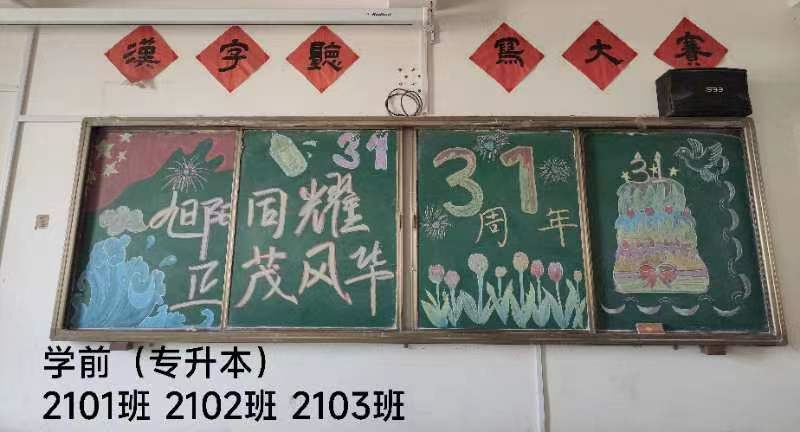 漢字聽寫大賽
31
旭阳同耀
正茂风华
31
周年
31
学前（专升本）
2101班 2102班 2103班